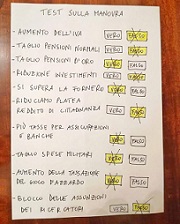 TEST SULLA MANOVRA
- AUMENTO DELL'IVA VERO FALSO
- TAGLIO PENSIONI NORMALI VERO FALSO
- TAGLIO PENSIONI D'ORO VERO FALSO
- RIDUZIONE INVESTIMENTI VERO FALSO
- SI SUPERA LA FORNERO VERO FALSO
- RIDUCIAMO PLATEA
REDDITO DI CITTADINANZA VERO FALSO
- PIÙ TASSE PER ASSICURAZIONI
E BANCHE VERO FALSO
- TAGLIO SPESE MILITARI VERO FALSO
- AUMENTO DELLA TASSAZIONE
DEL GIOCO D'AZZARDO VERO FALSO
- BLOCCO DELLE ASSUNZIONI
DEI RICERCATORI VERO FALSO